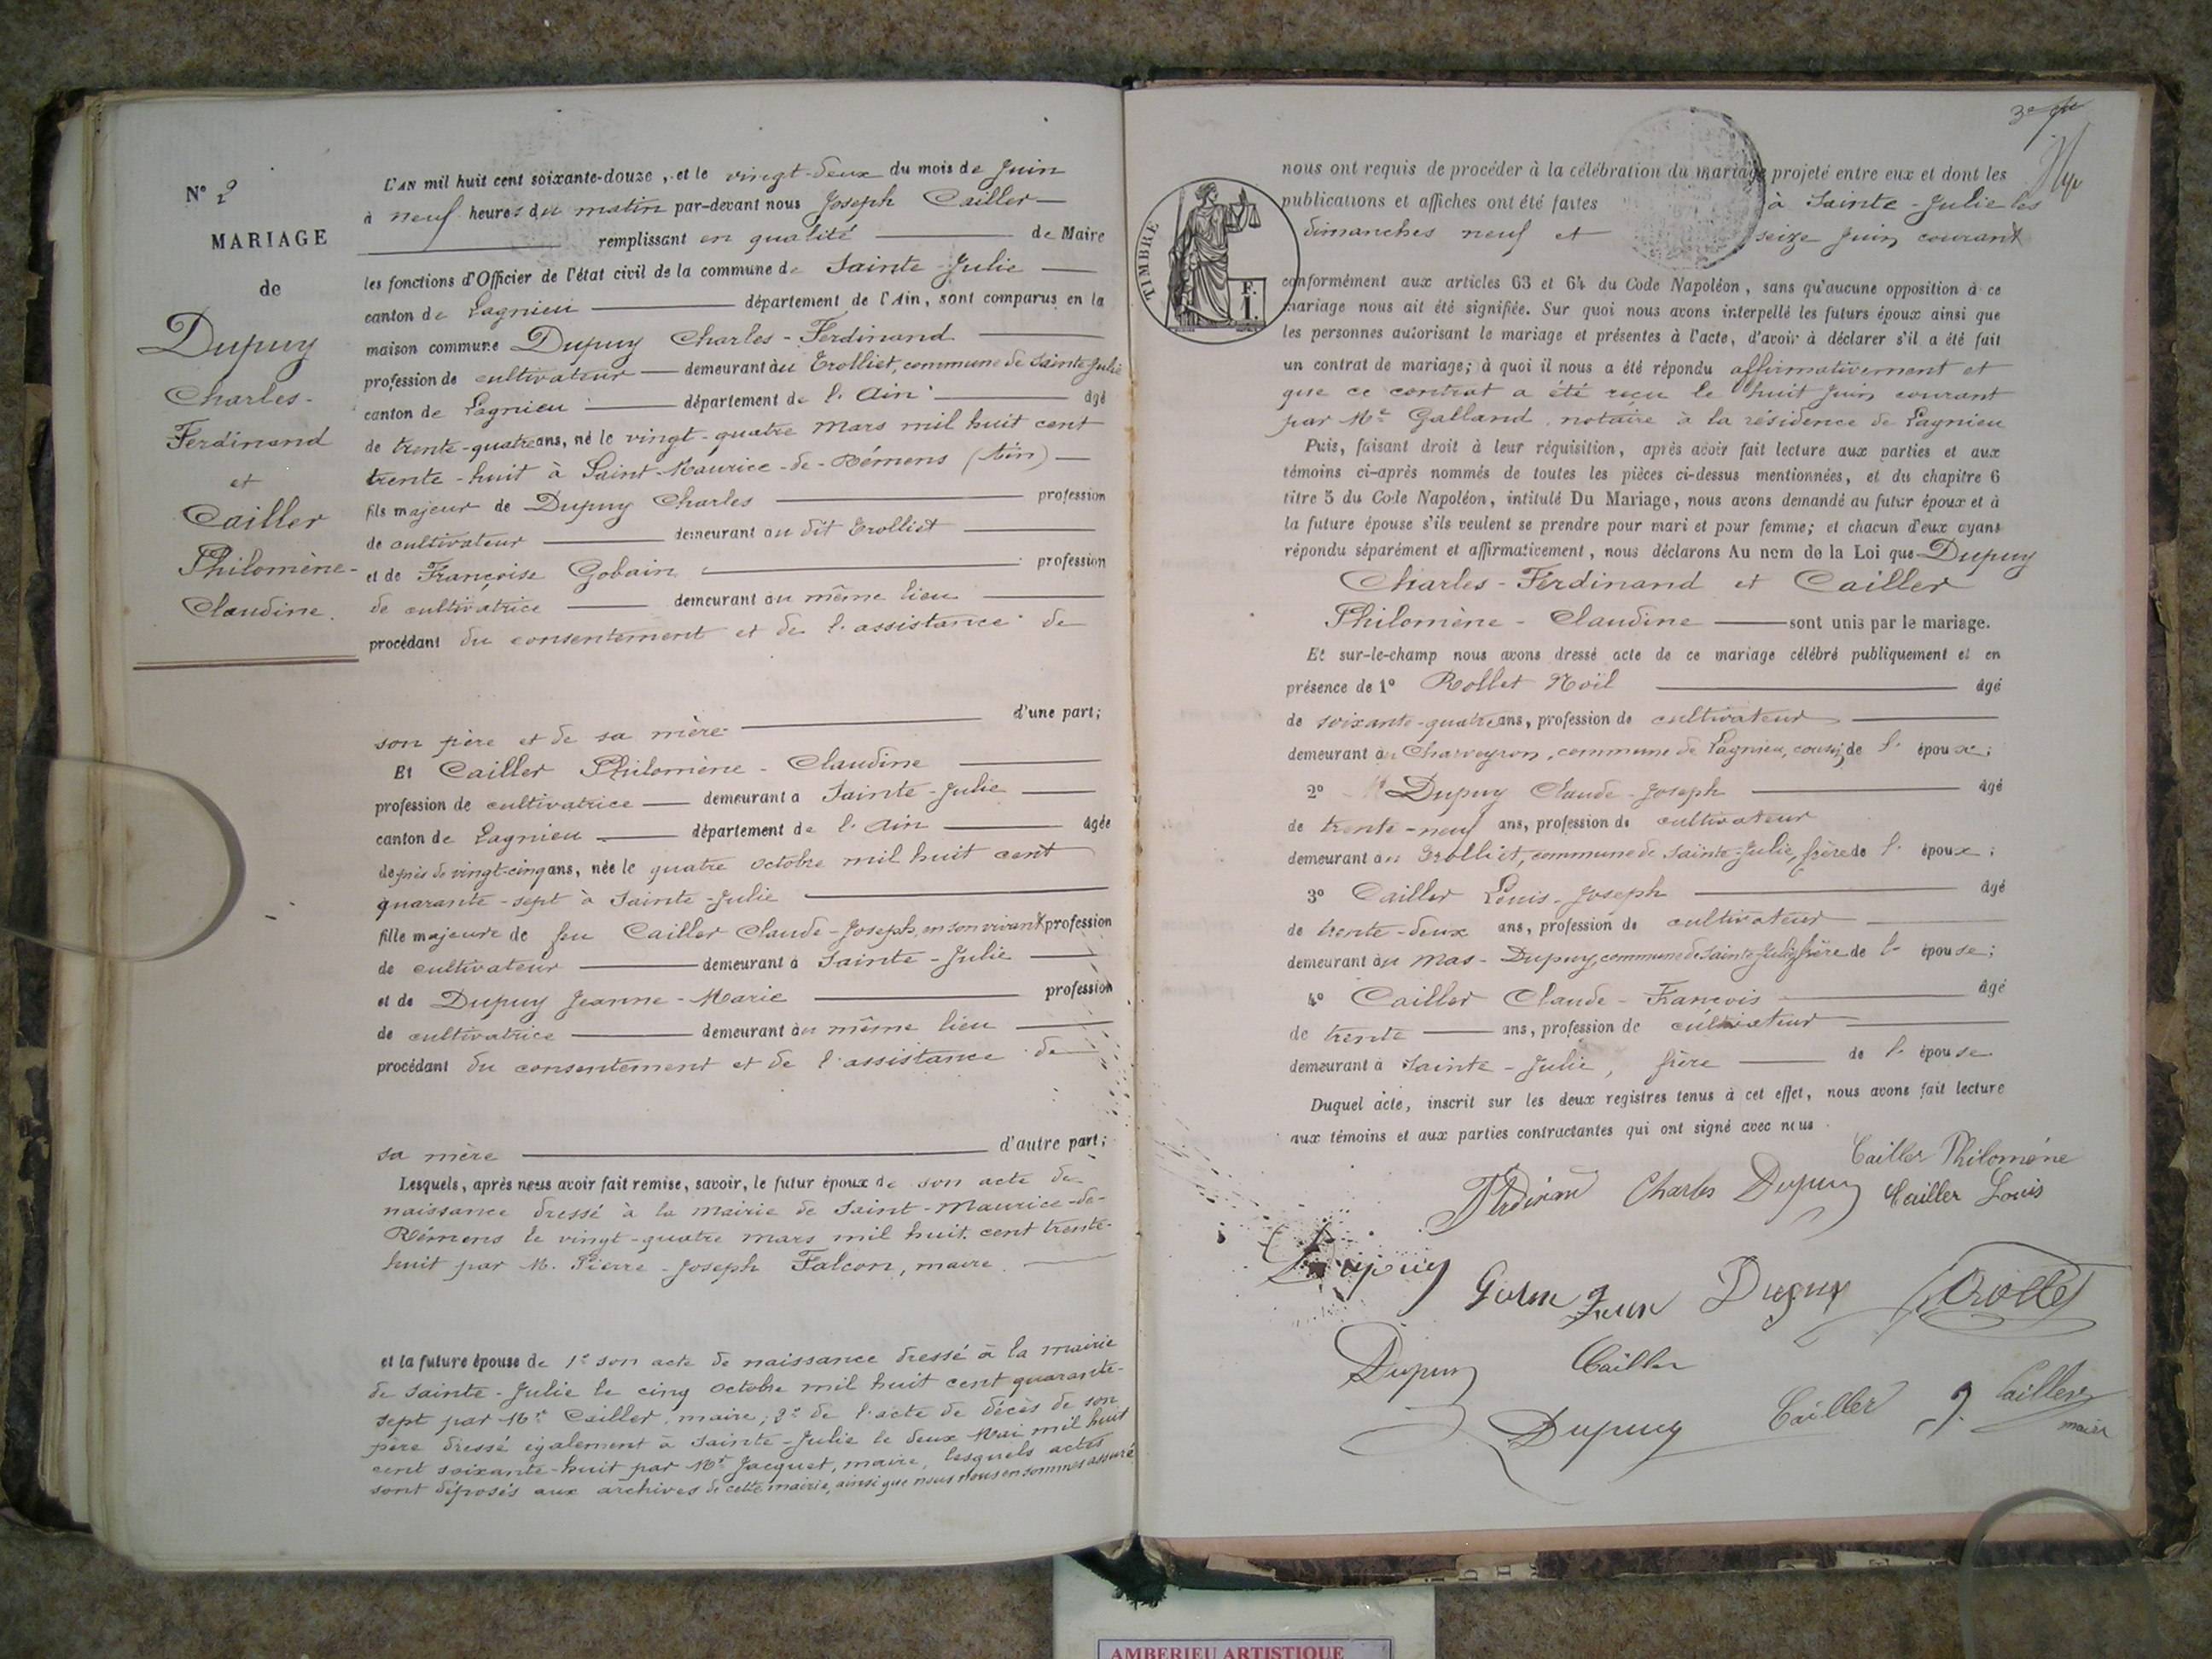 N° 2
MARIAGE
de
Dupuy
Charles-
Ferdinand
et
Cailler
Philomène-
Claudine.
L'AN mil huit cent soixante-douze, et le vingt-deux du mois de Juin
à neuf heures du matin par-devant nous Joseph Cailler
remplissant en qualité de Maire
les fonctions d'Officier de l'état civil de la commune de Sainte-Julie
canton de Lagnieu département de l'Ain, sont comparus en la
maison commune Dupuy Charles-Ferdinand
profession de cultivateur demeurant au Trolliet, commune de Sainte-Julie
canton de Lagnieu département de l'Ain âgé
de trente-quatre ans, né le vingt-quatre Mars mil huit cent
trente-huit à Saint-Maurice-de-Rémens (Ain)
fils majeur de Dupuy Charles profession
de cultivateur demeurant au dit Trolliet
et de Françoise Gobain profession
de cultivatrice demeurant au même lieu
procédant du consentement et de l'assistance de
son père et de sa mère d'une part;
Et Cailler Philomène-Claudine
profession de cultivatrice demeurant à Sainte-Julie
canton de Lagnieu département de l'Ain âgée
de près de vingt-cinq ans, née le quatre octobre mil huit cent
quarante-sept à Sainte-Julie
fille majeure de feu Cailler Claude-Joseph, en son vivant profession
de cultivateur demeurant à Sainte-Julie
et de Dupuy Jeanne-Marie profession
de cultivatrice demeurant au même lieu
procédant du consentement et de l'assistance de
sa mère d'autre part;
Lesquels, après nous avoir fait remise, savoir, le futur époux de son acte de
naissance dressé à la mairie de Saint-Maurice-de-
Rémens le vingt-quatre mars mil huit cent trente-
huit par M. Pierre-Joseph Falcon, maire.
et la future épouse de 1° son acte de naissance dressé à la mairie
de Sainte-Julie le cinq octobre mil huit cent quarante-
sept par Mr Cailler, maire; 2° de l'acte de décès de son
père dressé également à Sainte-Julie le deux Mai mil huit
cent soixante-huit par Mr Jacquet, maire, lesquels actes
sont déposés aux archives de cette mairie, ainsi que nous nous en sommes assuré
3e
TIMBRE
F.
1.
nous ont requis de procéder à la célébration du mariage projeté entre eux et dont les
publications et affiches ont été faites à Sainte-Julie les
dimanches neuf et seize Juin courant
conformément aux articles 63 et 64 du Code Napoléon, sans qu'aucune opposition à ce
mariage nous ait été signifiée. Sur quoi nous avons interpellé les futurs époux ainsi que
les personnes autorisant le mariage et présentes à l'acte, d'avoir à déclarer s'il a été fait
un contrat de mariage; à quoi il nous a été répondu affirmativement et
que ce contrat a été reçu le huit Juin courant
par Me Galland, notaire à la résidence de Lagnieu
Puis, faisant droit à leur réquisition, après avoir fait lecture aux parties et aux
témoins ci-après nommés de toutes les pièces ci-dessus mentionnées, et du chapitre 6
titre 5 du Code Napoléon, intitulé Du Mariage, nous avons demandé au futur époux et à
la future épouse s'ils veulent se prendre pour mari et pour femme; et chacun d'eux ayans
répondu séparément et affirmativement, nous déclarons Au nom de la Loi que Dupuy
Charles-Ferdinand et Cailler
Philomène-Claudine sont unis par le mariage.
Et sur-le-champ nous avons dressé acte de ce mariage célébré publiquement et en
présence de 1° Rollet Noël âgé
de soixante-quatre ans, profession de cultivateur
demeurant au Charveyron, commune de Lagnieu, cousin de l'époux;
2° Dupuy Claude-Joseph âgé
de trente-neuf ans, profession de cultivateur
demeurant au Trolliet, commune de Sainte-Julie, frère de l'époux;
3° Cailler Louis-Joseph âgé
de trente-deux ans, profession de cultivateur
demeurant au Mas-Dupuy, commune de Sainte-Julie, frère de l'épouse;
4° Cailler Claude-François âgé
de trente ans, profession de cultivateur
demeurant à Sainte-Julie, frère de l'épouse
Duquel acte, inscrit sur les deux registres tenus à cet effet, nous avons fait lecture
aux témoins et aux parties contractantes qui ont signé avec nous
Cailler Philomène
Charles Dupuy Cailler Louis
Dupuy
Dupuy
Dupuy Cailler
Dupuy Cailler J. Cailler
maire
AMBERIEU ARTISTIQUE